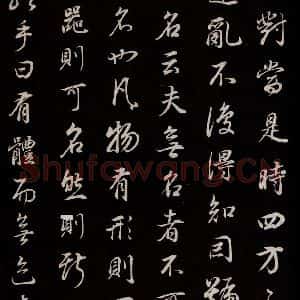 對當是時四方
亂不復得知司
名云夫無名者不可
名也凡物有形則
器則可名然則
手曰有體而無色
Shufawang.CN